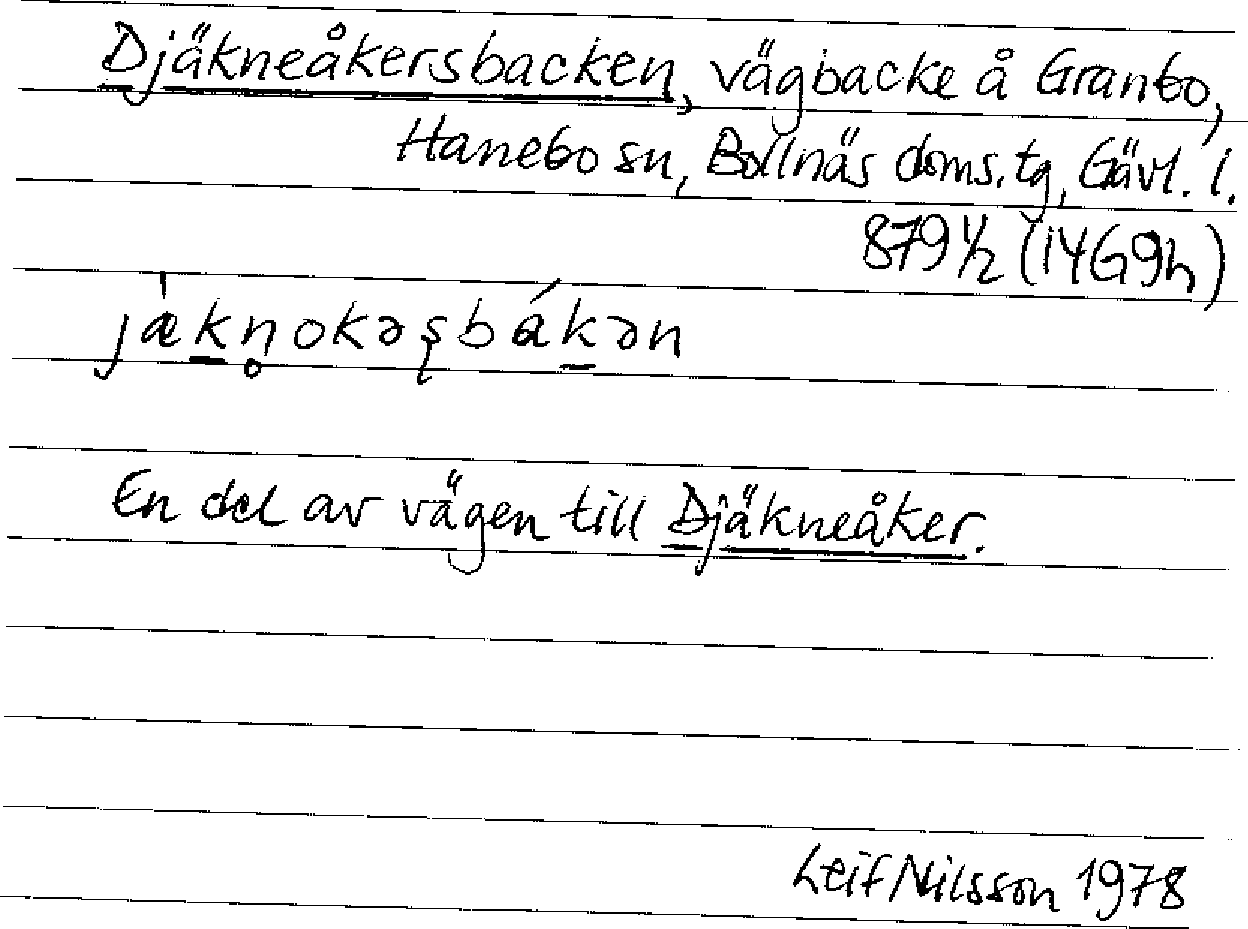 Djäkneåkersbacken, vägbacke å Granbo,
Hanebo sn, Bollnäs doms.tg, Gävl. l.
879 1/2 (14G9h)
jæ̍k̠n̥okəʂbák̠ən
En del av vägen till Djäkneåker.
Leif Nilsson 1978